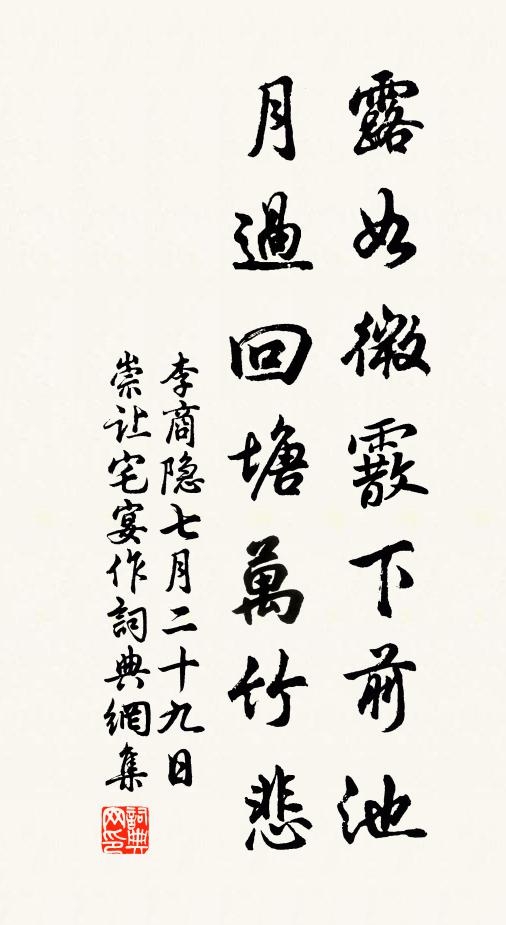 露如微霰下前池
月過回塘萬竹悲
李商隐七月二十九日
崇让宅宴作詞典網集
詞典网印